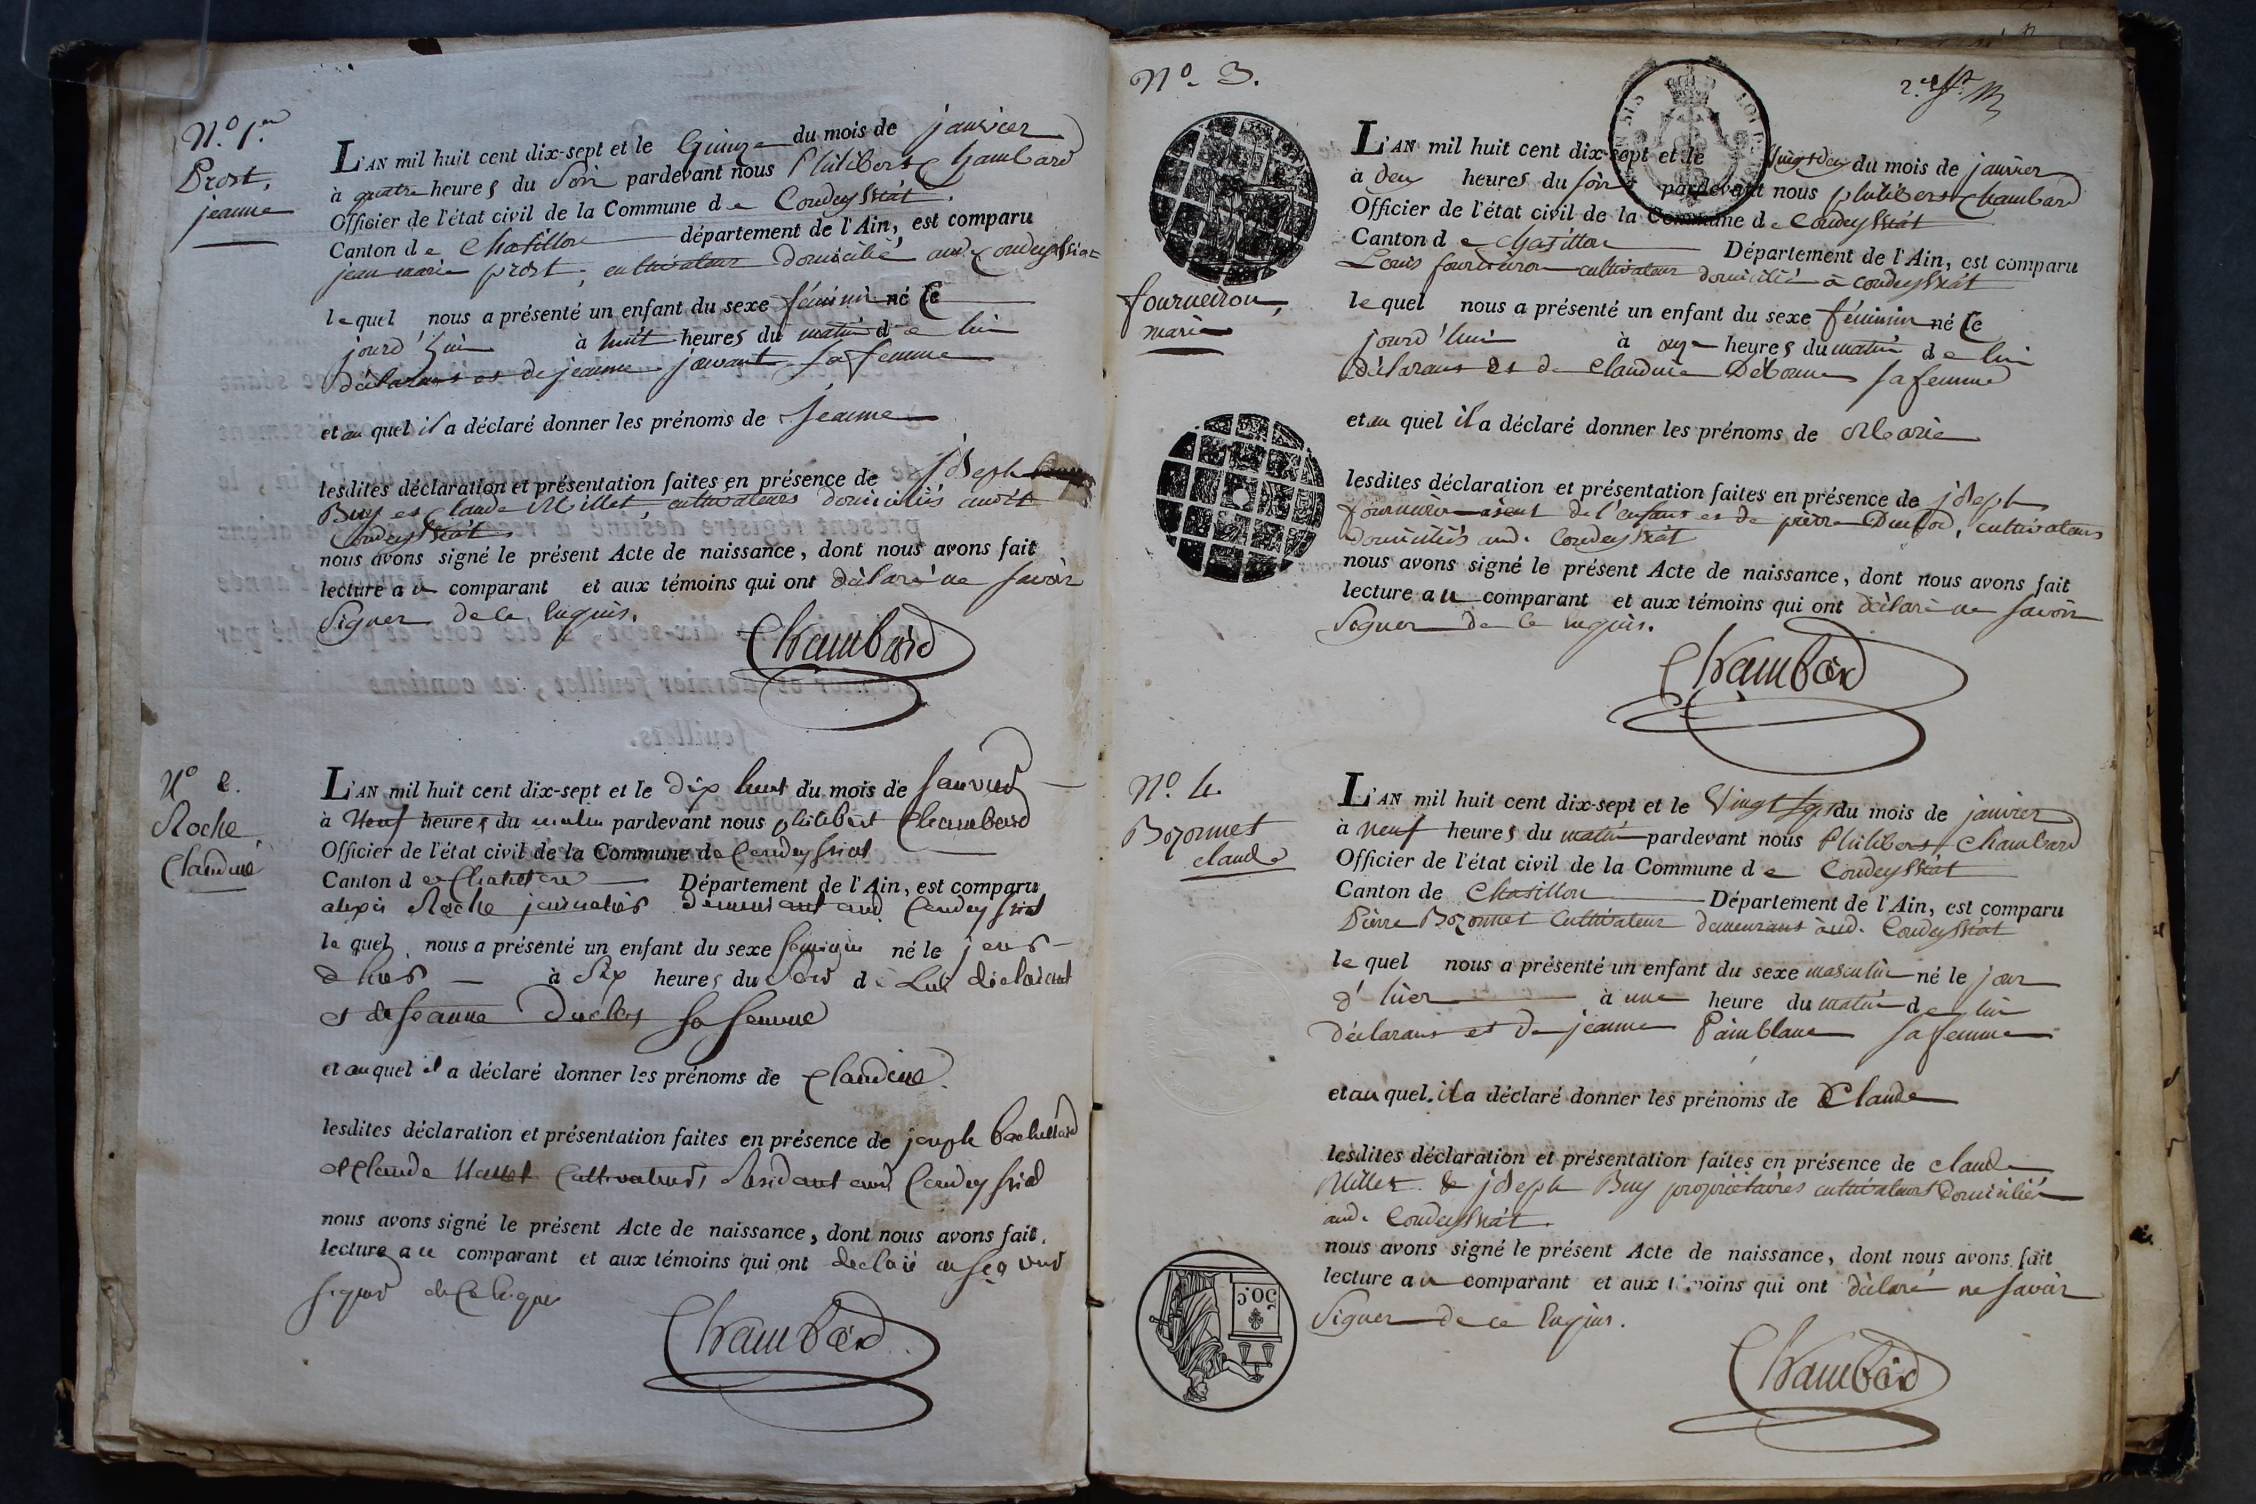 N.o 1.er
Prost,
jeanne
L'AN mil huit cent dix-sept et le Quinze du mois de janvier
à quatre heures du soir pardevant nous Philibert Chambard
Officier de l'état civil de la Commune de Condeyssiat.
Canton de Chatillon département de l'Ain, est comparu
jean marie prost, cultivateur domicilié aud. Condeyssiat
lequel nous a présenté un enfant du sexe féminin né Ce
jourd'hui à huit heures du matin de lui
déclarant et de jeanne jouvent sa femme
et au quel il a déclaré donner les prénoms de Jeanne
lesdites déclaration et présentation faites en présence de joseph
Buy et Claude Millet, cultivateurs domiciliés audit
Condeyssiat
nous avons signé le présent Acte de naissance, dont nous avons fait
lecture au comparant et aux témoins qui ont déclaré ne savoir
Signer de ce enquis.
Chambard
N.o 2.
Roche,
Claudine
L'AN mil huit cent dix-sept et le dix huit du mois de Janvier
à Neuf heures du matin pardevant nous philibert Chambard
Officier de l'état civil de la Commune de Condeyssiat
Canton de Chatillon Département de l'Ain, est comparu
alexis Roche journalier demeurant aud Condeyssiat
le quel nous a présenté un enfant du sexe féminin né le jour
d'hier à Six heures du Soir de Lui déclarant
et de Jeanne Duclos sa femme
et au quel il a déclaré donner les prénoms de Claudine.
lesdites déclaration et présentation faites en présence de joseph bachellard
et Claude Cultivateurs Résidant aud Condeyssiat
nous avons signé le présent Acte de naissance, dont nous avons fait
lecture au comparant et aux témoins qui ont déclaré ne savoir
signer de Ce Enquis
Chambard
N.o 3.
2.e f.t
fourneiron,
marie
L'AN mil huit cent dix-sept et le Vingt deux du mois de janvier
à deux heures du soir pardevant nous philibert Chambard
Officier de l'état civil de la Commune de Condeyssiat
Canton de chatillon Département de l'Ain, est comparu
Louis fourneiron cultivateur domicilié à condeyssiat
le quel nous a présenté un enfant du sexe féminin né Ce
jourd'hui à onze heures du matin de lui
déclarant et de Claudine Debonne sa femme
et au quel il a déclaré donner les prénoms de Marie
lesdites déclaration et présentation faites en présence de joseph
fourneiron de l'enfant et de pierre cultivateurs
domiciliés aud. Condeyssiat
nous avons signé le présent Acte de naissance, dont nous avons fait
lecture au comparant et aux témoins qui ont déclaré ne savoir
Signer de ce enquis.
Chambard
N.o 4.
Bozonnet
claude
L'AN mil huit cent dix-sept et le Vingt sept du mois de janvier
à neuf heures du matin pardevant nous Philibert Chambard
Officier de l'état civil de la Commune de Condeyssiat
Canton de Chatillon Département de l'Ain, est comparu
Pierre Bozonnet Cultivateur demeurant aud. Condeyssiat
le quel nous a présenté un enfant du sexe masculin né le jour
d'hier à une heure du matin de lui
déclarant et de jeanne Painblanc sa femme
et au quel il a déclaré donner les prénoms de Claude
lesdites déclaration et présentation faites en présence de claude
Millet & joseph Buy propriétaires cultivateurs domiciliés
aud. Condeyssiat.
nous avons signé le présent Acte de naissance, dont nous avons fait
lecture au comparant et aux témoins qui ont déclaré ne savoir
Signer de ce enquis.
50 C
Chambard